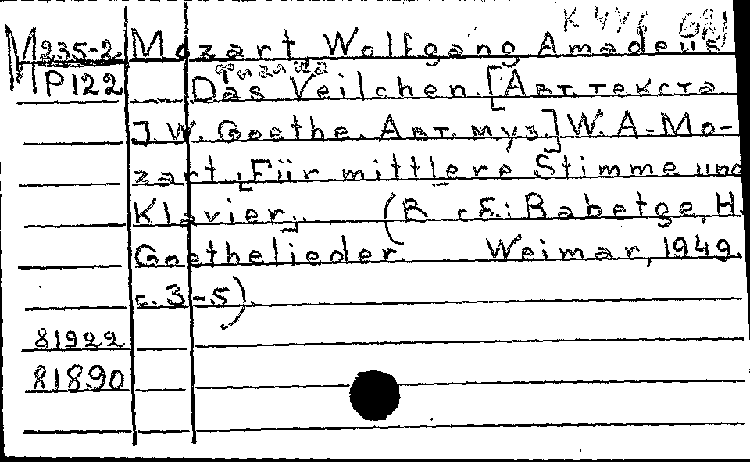 К 446
М 235-2 Mozart, Wolfgang Amadeus
P122 Das Veilchen. [Авт. текста
J. W. Goethe. Авт. муз.] W. A. Mo-
zart. [Für mittlere Stimme und
Klavier]. (В сб.: Rabetge, H.
Goethelieder Weimar, 1949.
с. 3-5).
81922
81890